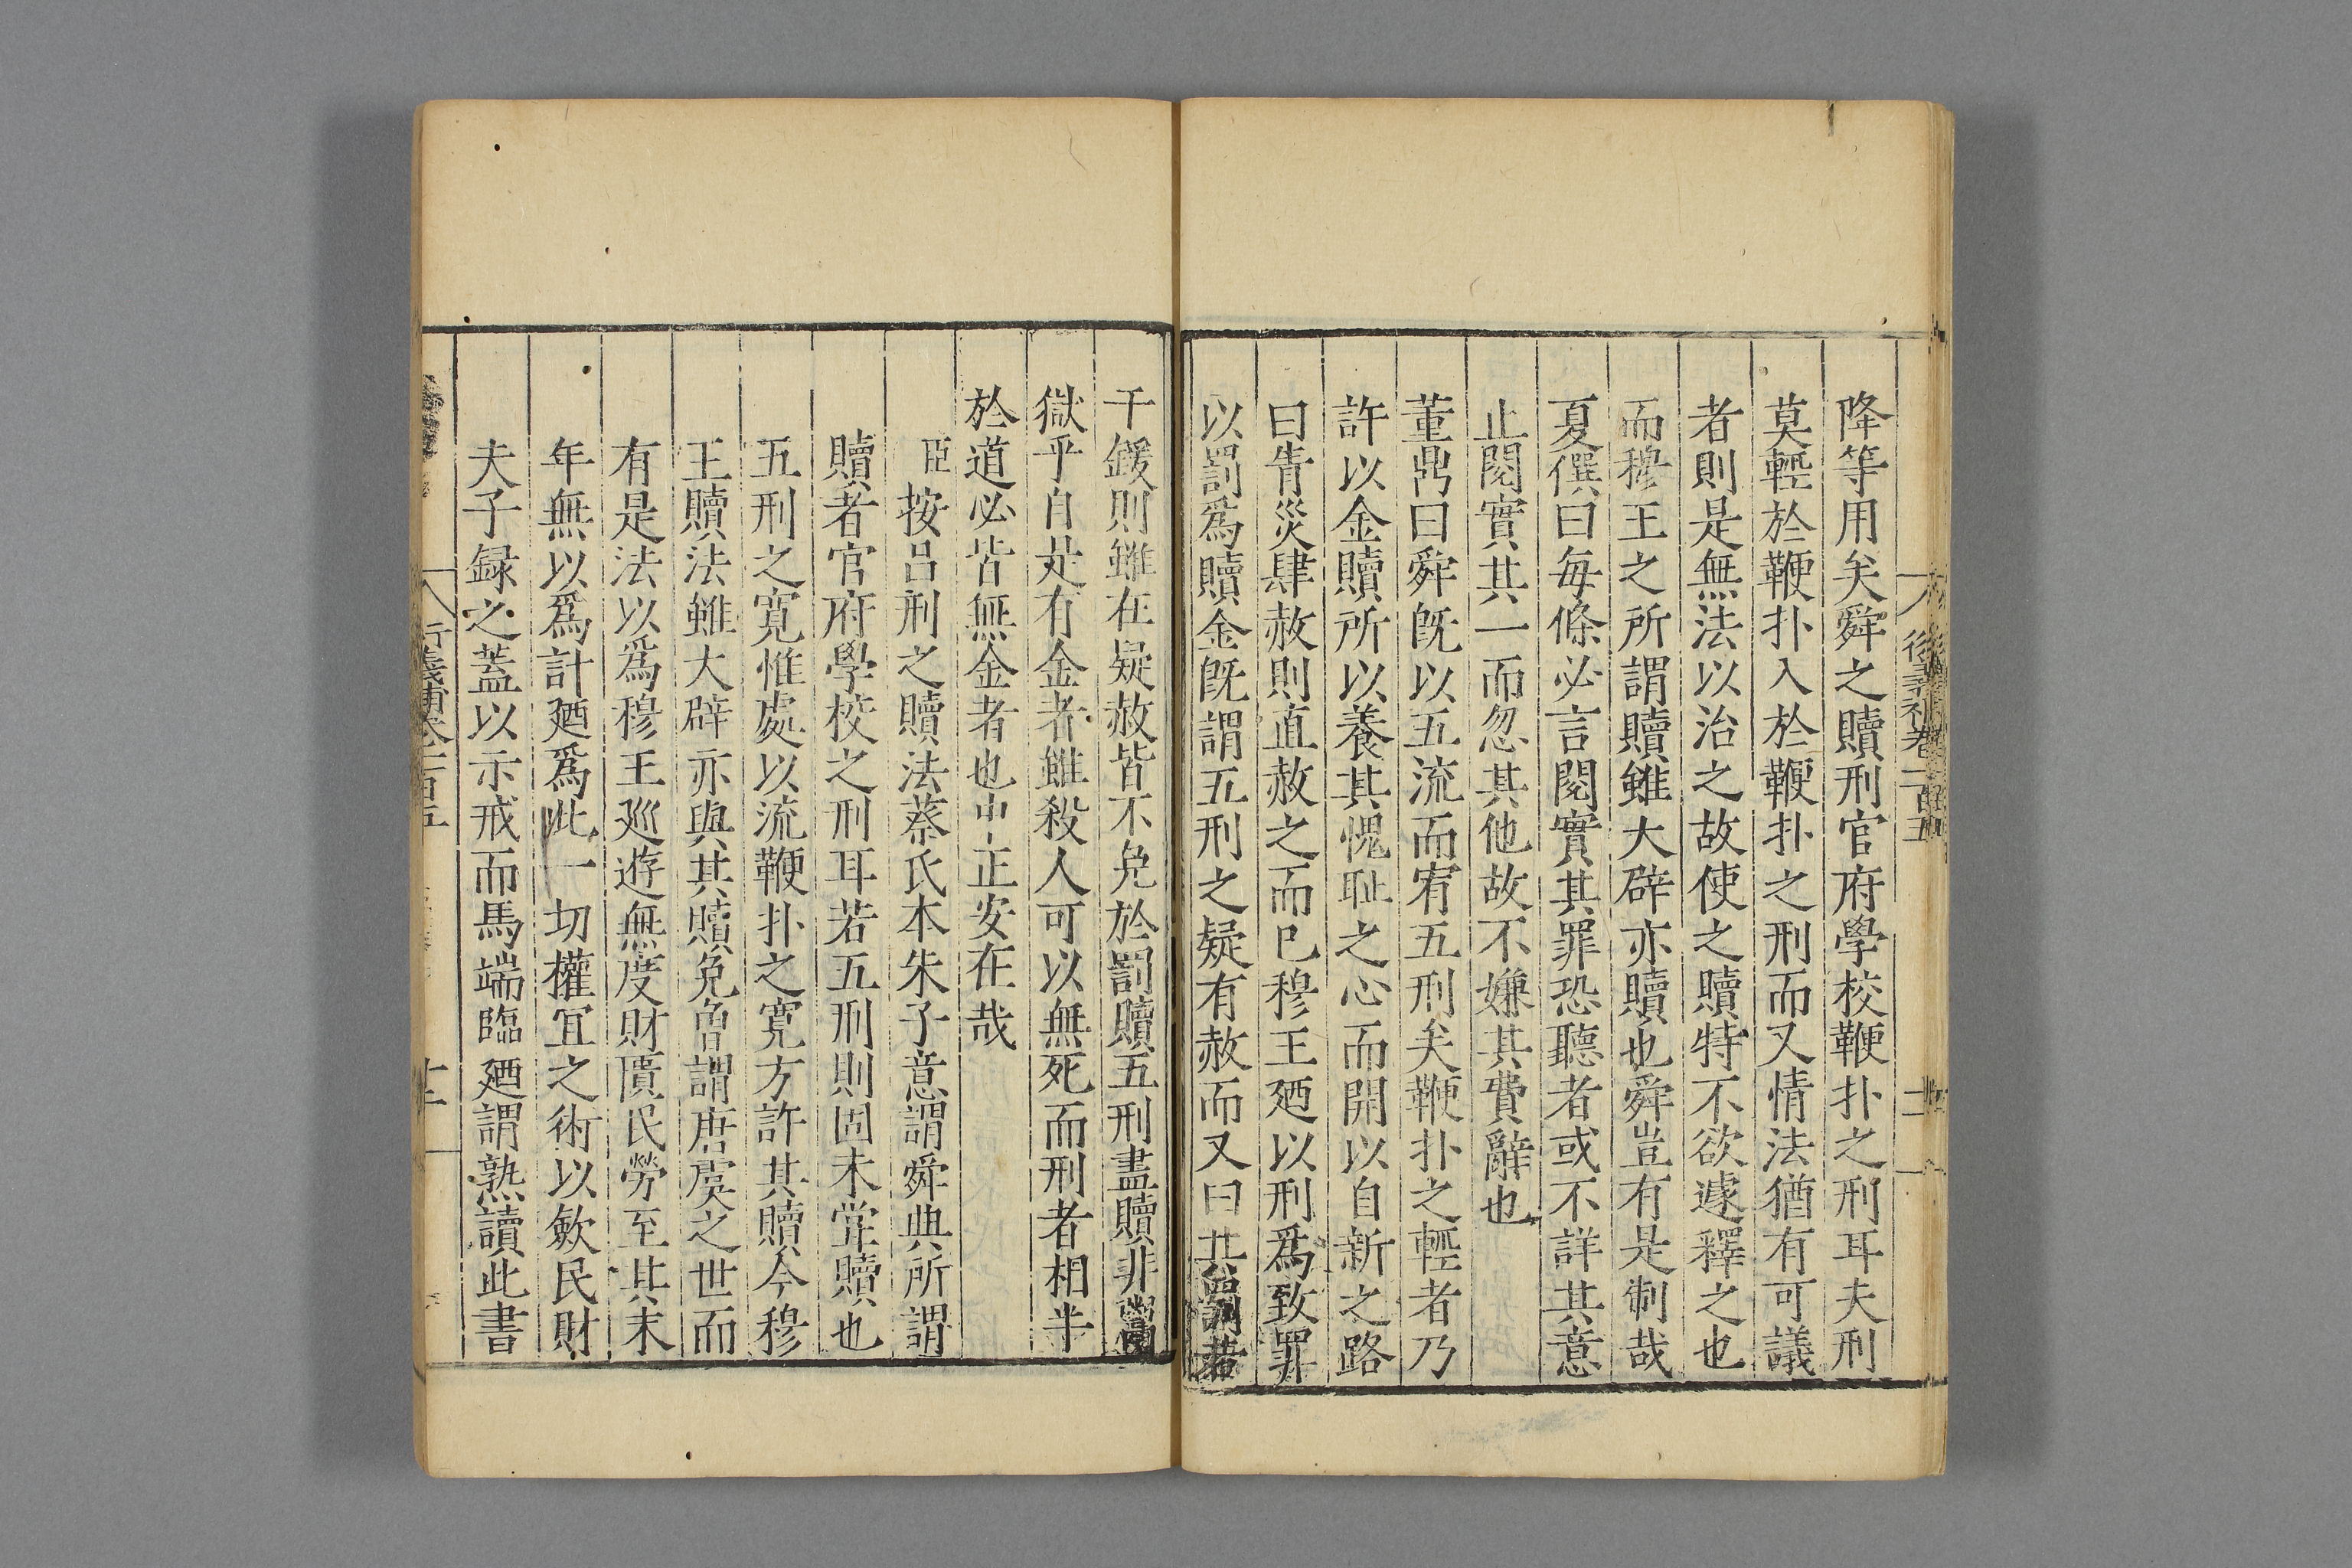 降等用矣舜之贖刑官府學校鞭扑之刑耳夫刑
莫輕於鞭扑入於鞭扑之刑而又情法猶有可議
者則是無法以治之故使之贖特不欲遽釋之也
而穆王之所謂贖雖大辟亦贖也舜豈有是制哉
夏僎曰毎條必言閱實其罪恐聽者或不詳其意
止閱實其一而忽其他故不嫌其費辭也
董鼎曰舜旣以五流而宥五刑矣鞭扑之輕者乃
許以金贖所以養其愧耻之心而開以自新之路
曰眚災肆赦則直赦之而已穆王廼以刑爲致罪
以罰爲贖金旣謂五刑之疑有赦而又曰其罰若
千鍰則雖在疑赦皆不免於罰贖五刑盡贖非鬻
獄乎自是有金者雖殺人可以無死而刑者相半
於道必皆無金者也中正安在哉
臣按呂刑之贖法蔡氏本朱子意謂舜典所謂
贖者官府學校之刑耳若五刑則固未甞贖也
五刑之寛惟處以流鞭扑之寛方許其贖今穆
王贖法雖大辟亦與其贖免曾謂唐虞之世而
有是法以爲穆王廵遊無度財匱民勞至其末
年無以爲計廼爲此一切權冝之術以歛民財
夫子録之蓋以示戒而馬端臨廼謂熟讀此書